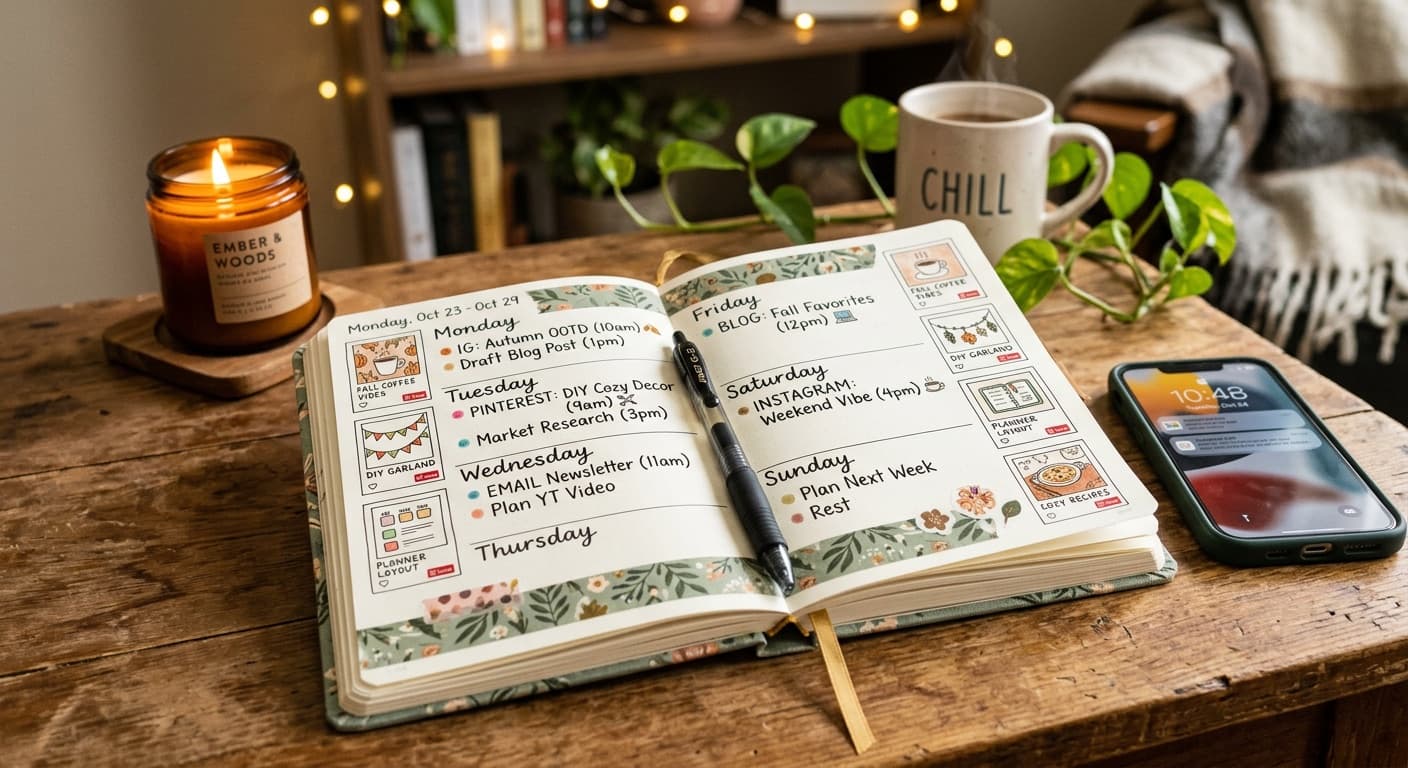 EMBER &
WOODS
CHILL
Monday, Oct 23 - Oct 29
Monday
IG: Autumn OOTD (10am)
Draft Blog Post (1pm)
Tuesday
PINTEREST: DIY Cozy Decor
(9am)
Market Research (3pm)
Wednesday
EMAIL Newsletter (11am)
Plan YT Video
Thursday
FALL COFFEE
VIBES
DIY GARLAND
PLANNER
LAYOUT
Friday
BLOG: Fall Favorites
(12pm)
Saturday
INSTAGRAM:
Weekend Vibe (4pm)
Sunday
Plan Next Week
Rest
FALL COFFEE
DIY GARLAND
PLANNER
LAYOUT
COZY RECIPES
10:48
Tuesday, Oct 24